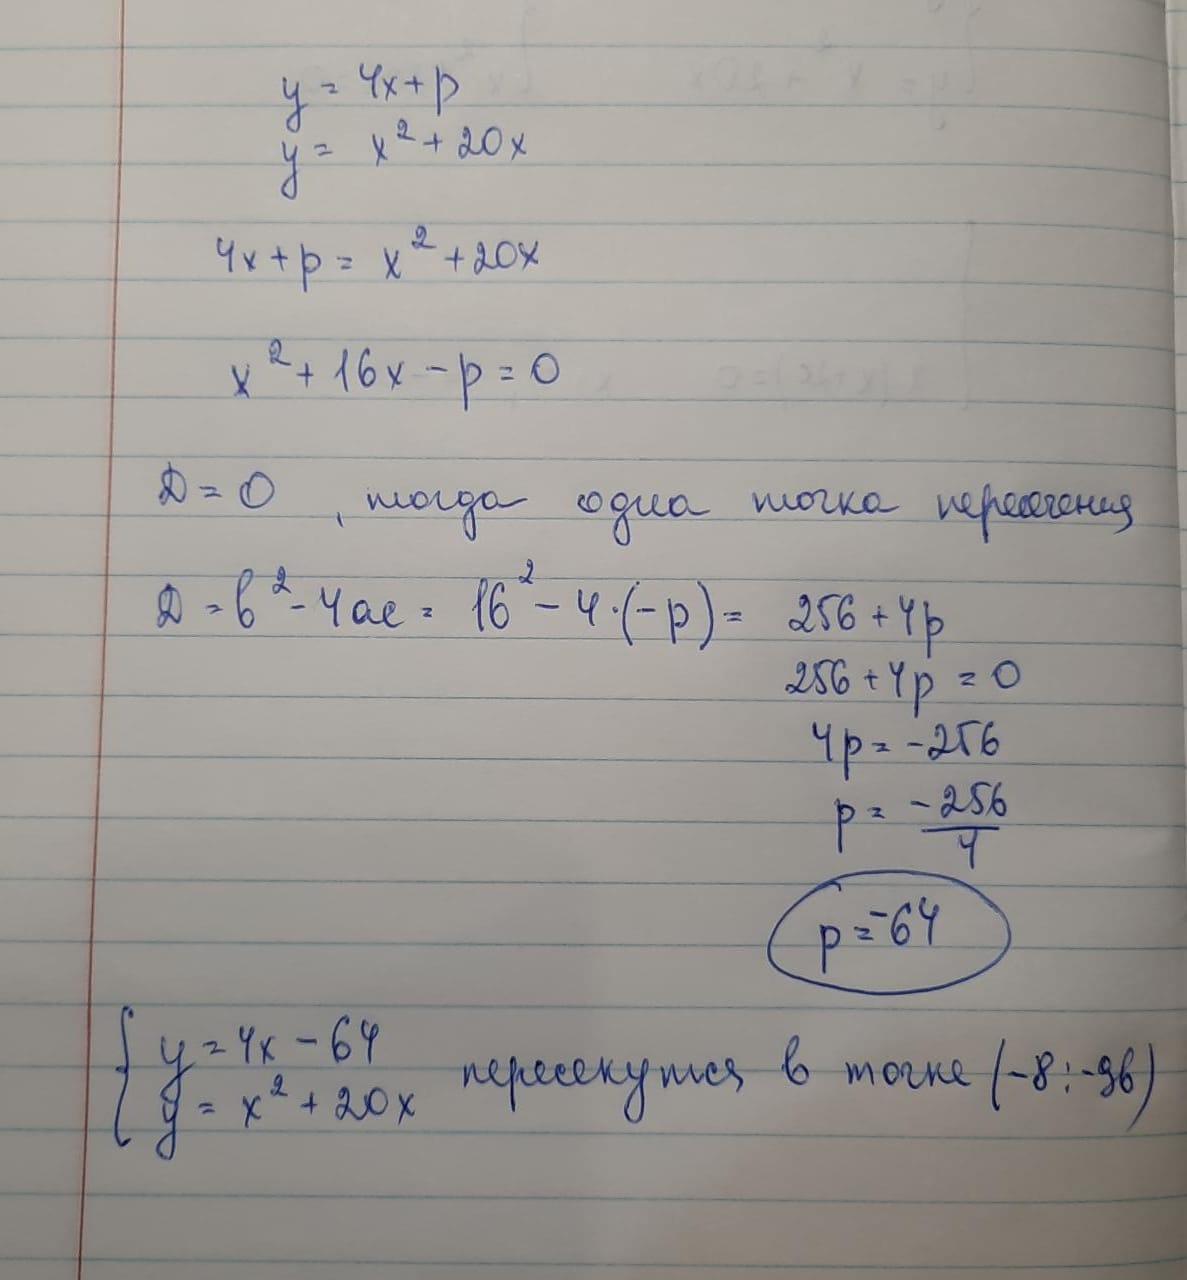 y = 4x + p
y = x² + 20x
4x + p = x² + 20x
x² + 16x - p = 0
D = 0, тогда одна точка пересечения
D = b² - 4ac = 16² - 4·(-p) = 256 + 4p
256 + 4p = 0
4p = -256
p = -256/4
p = -64
{ y = 4x - 64
y = x² + 20x пересекутся в точке (-8; -96)